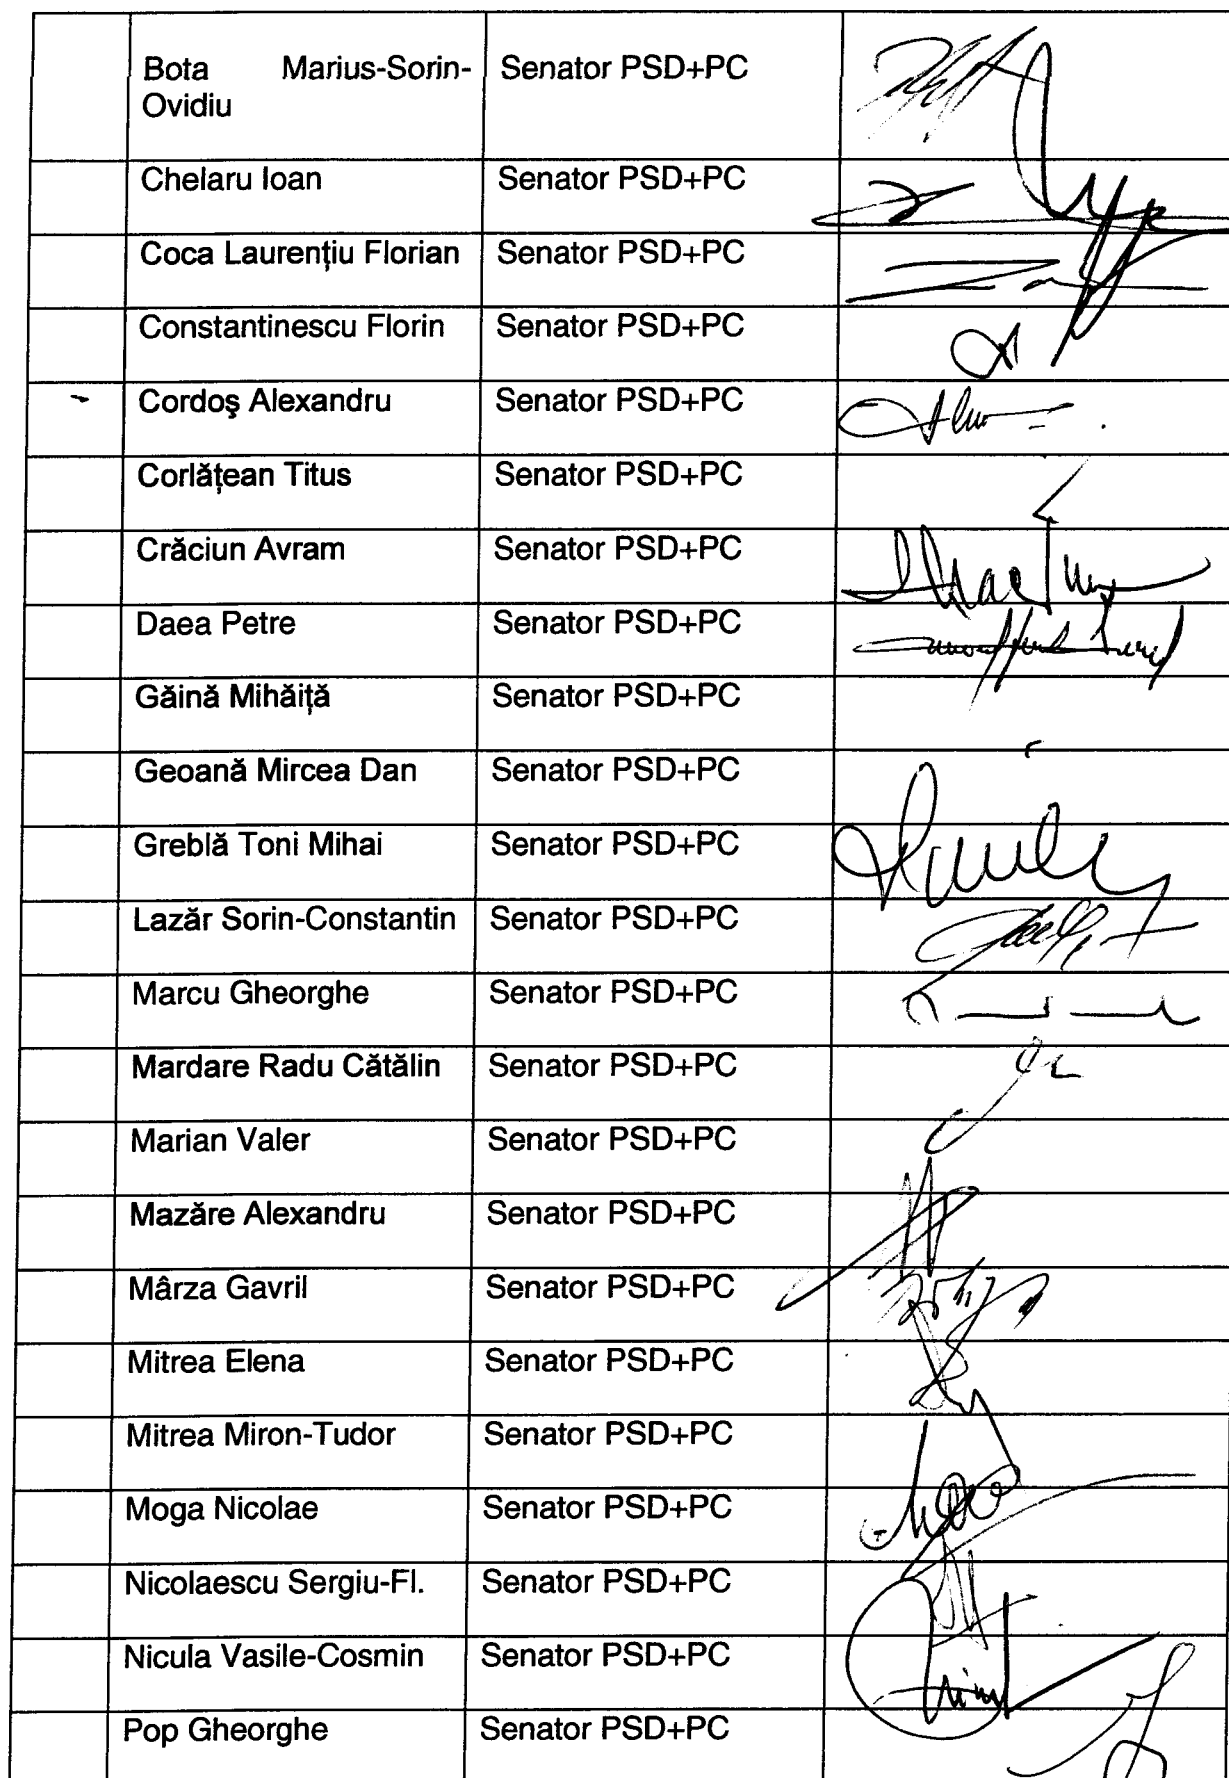 Bota Marius-Sorin- Senator PSD+PC
Ovidiu
Chelaru Ioan Senator PSD+PC
Coca Laurenţiu Florian Senator PSD+PC
Constantinescu Florin Senator PSD+PC
- Cordoş Alexandru Senator PSD+PC
Corlăţean Titus Senator PSD+PC
Crăciun Avram Senator PSD+PC
Daea Petre Senator PSD+PC
Găină Mihăiţă Senator PSD+PC
Geoană Mircea Dan Senator PSD+PC
Greblă Toni Mihai Senator PSD+PC
Lazăr Sorin-Constantin Senator PSD+PC
Marcu Gheorghe Senator PSD+PC
Mardare Radu Cătălin Senator PSD+PC
Marian Valer Senator PSD+PC
Mazăre Alexandru Senator PSD+PC
Mârza Gavril Senator PSD+PC
Mitrea Elena Senator PSD+PC
Mitrea Miron-Tudor Senator PSD+PC
Moga Nicolae Senator PSD+PC
Nicolaescu Sergiu-Fl. Senator PSD+PC
Nicula Vasile-Cosmin Senator PSD+PC
Pop Gheorghe Senator PSD+PC